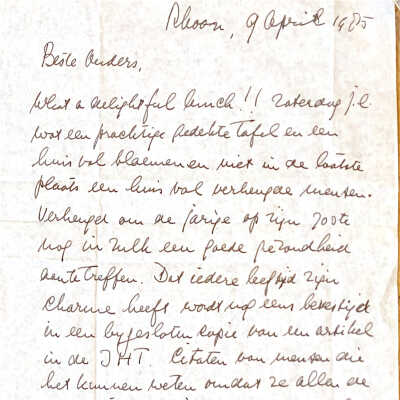 Rhoon, 9 April 1985
Beste Ouders,
What a delightful lunch!! Zaterdag j.l.
wat een prachtige gedekte tafel en een
huis vol bloemen en niet in de laatste
plaats een huis vol verheugde mensen.
Verheugd om de jarige op zijn 70ste
nog in zulk een goede gezondheid
aan te treffen. Dat iedere leeftijd zijn
charme heeft wordt nog eens bevestigd
in een bijgesloten copie van een artikel
in de IHT. Citaten van mensen die
het kunnen weten omdat ze allen de